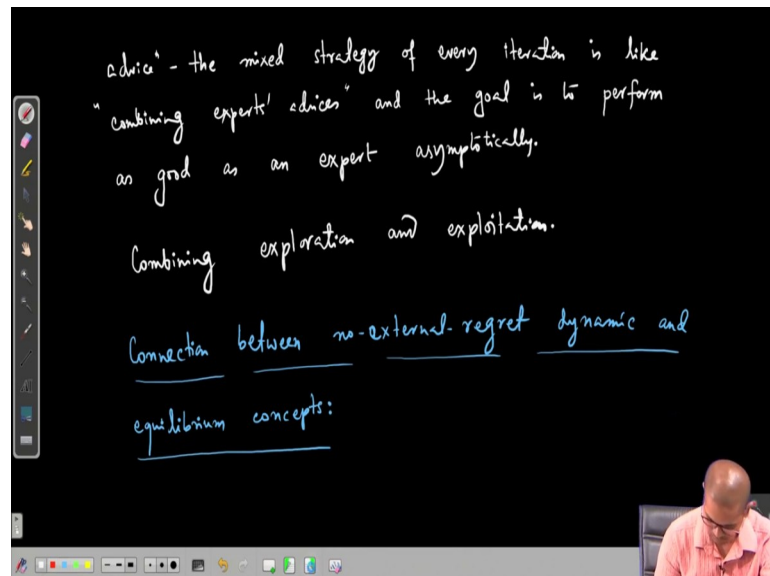 advice" - the mixed strategy of every iteration is like
"combining experts' advices" and the goal is to perform
as good as an expert asymptotically.
Combining exploration and exploitation.
Connection between no-external-regret dynamic and
equilibrium concepts: